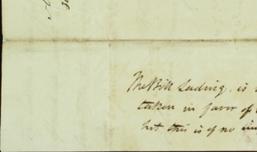 The Bill Lading is
taken in favor of
but this is of no